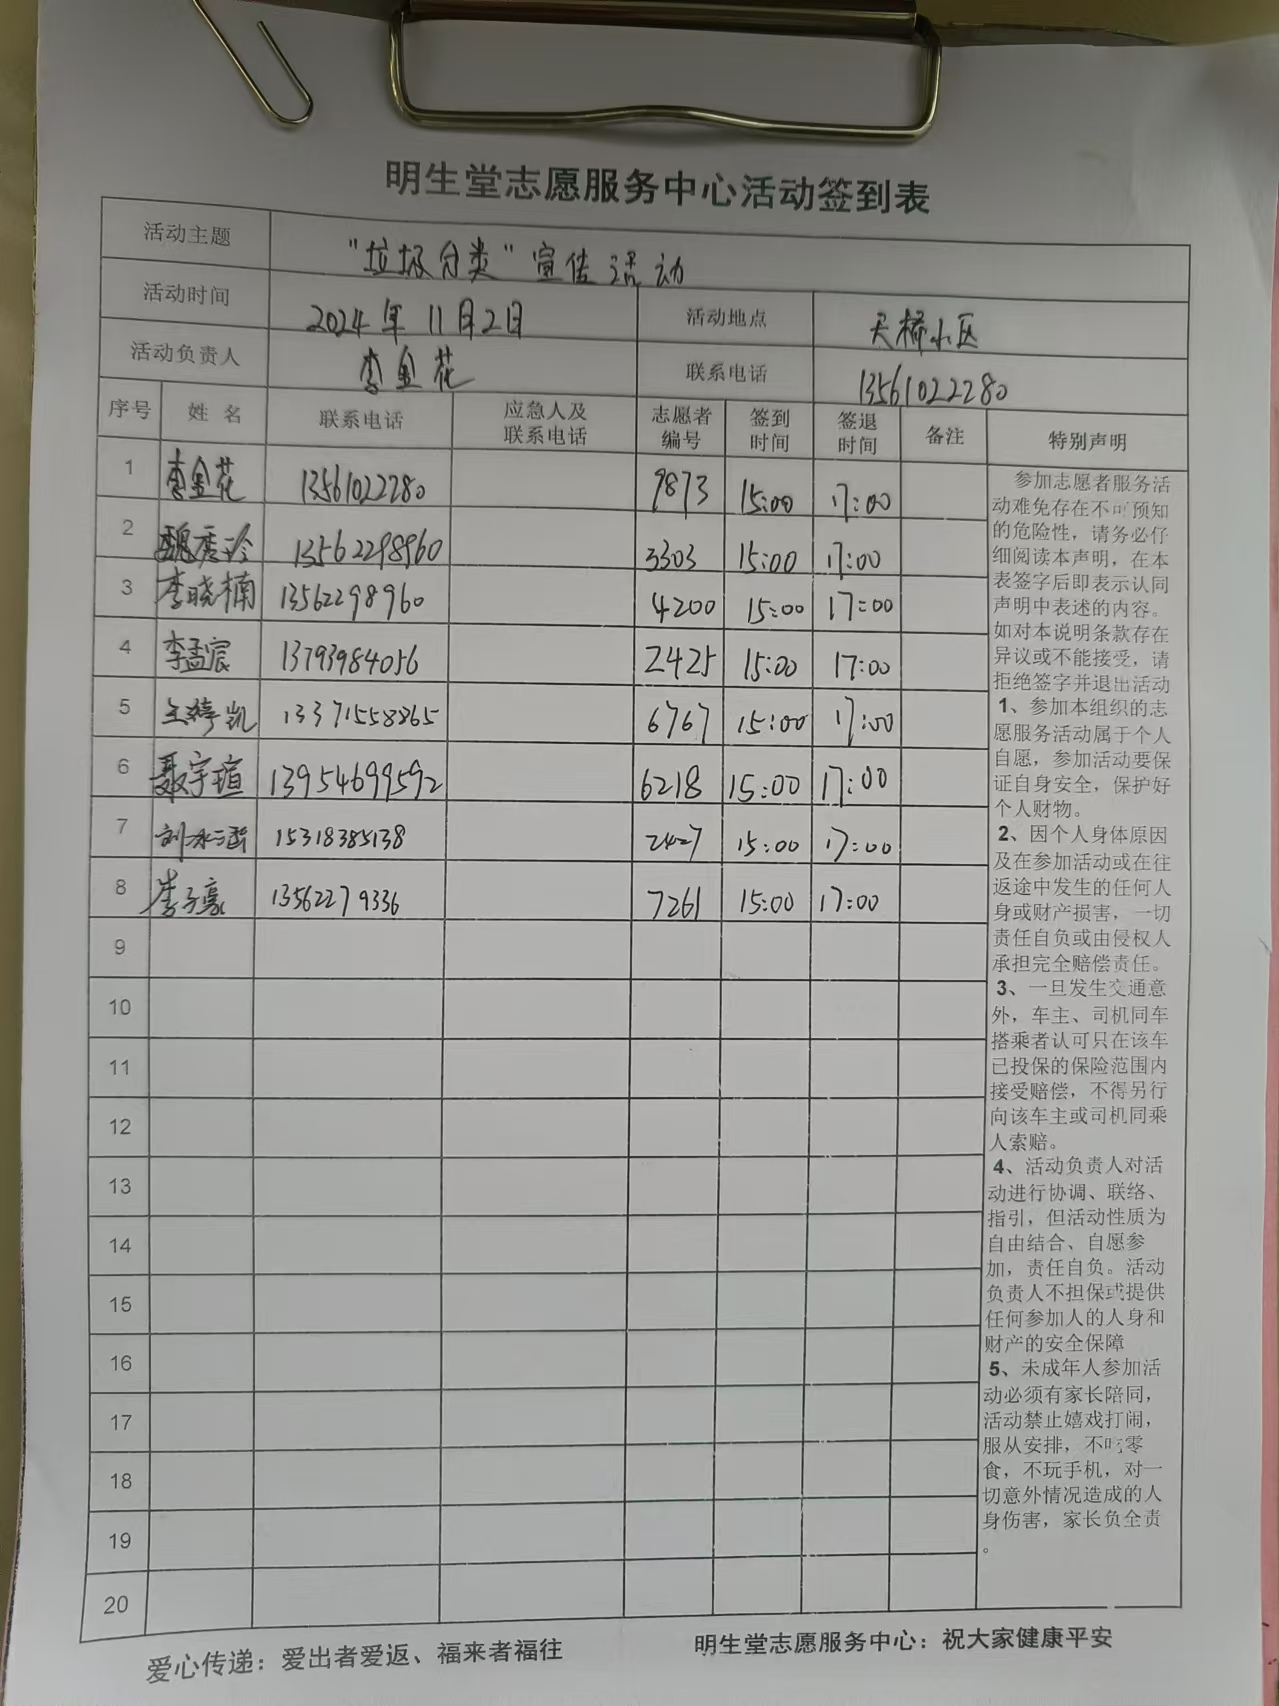 明生堂志愿服务中心活动签到表
活动主题 "垃圾分类"宣传活动
活动时间 2024年11月2日 活动地点 天桥小区
活动负责人 李金花 联系电话 13561022280
序号 姓名 联系电话 应急人及联系电话 志愿者编号 签到时间 签退时间 备注 特别声明
1 李金花 13561022280 9873 15:00 17:00
2 魏秀玲 13562298960 3303 15:00 17:00
3 李晓楠 13562298960 4200 15:00 17:00
4 李孟宸 13793984056 2425 15:00 17:00
5 王婷凯 13371558865 6767 15:00 17:00
6 聂宇瑄 13954699592 6218 15:00 17:00
7 刘冰涵 15318385138 2427 15:00 17:00
8 李子豪 13562279336 7261 15:00 17:00
9
10
11
12
13
14
15
16
17
18
19
20
参加志愿者服务活
动难免存在不可预知
的危险性，请务必仔
细阅读本声明，在本
表签字后即表示认同
声明中表述的内容。
如对本说明条款存在
异议或不能接受，请
拒绝签字并退出活动
1、参加本组织的志
愿服务活动属于个人
自愿，参加活动要保
证自身安全，保护好
个人财物。
2、因个人身体原因
及在参加活动或在往
返途中发生的任何人
身或财产损害，一切
责任自负或由侵权人
承担完全赔偿责任。
3、一旦发生交通意
外，车主、司机同车
搭乘者认可只在该车
已投保的保险范围内
接受赔偿，不得另行
向该车主或司机同乘
人索赔。
4、活动负责人对活
动进行协调、联络、
指引，但活动性质为
自由结合、自愿参
加，责任自负。活动
负责人不担保或提供
任何参加人的人身和
财产的安全保障
5、未成年人参加活
动必须有家长陪同，
活动禁止嬉戏打闹，
服从安排，不吃零
食，不玩手机，对一
切意外情况造成的人
身伤害，家长负全责
。
爱心传递：爱出者爱返、福来者福往
明生堂志愿服务中心：祝大家健康平安